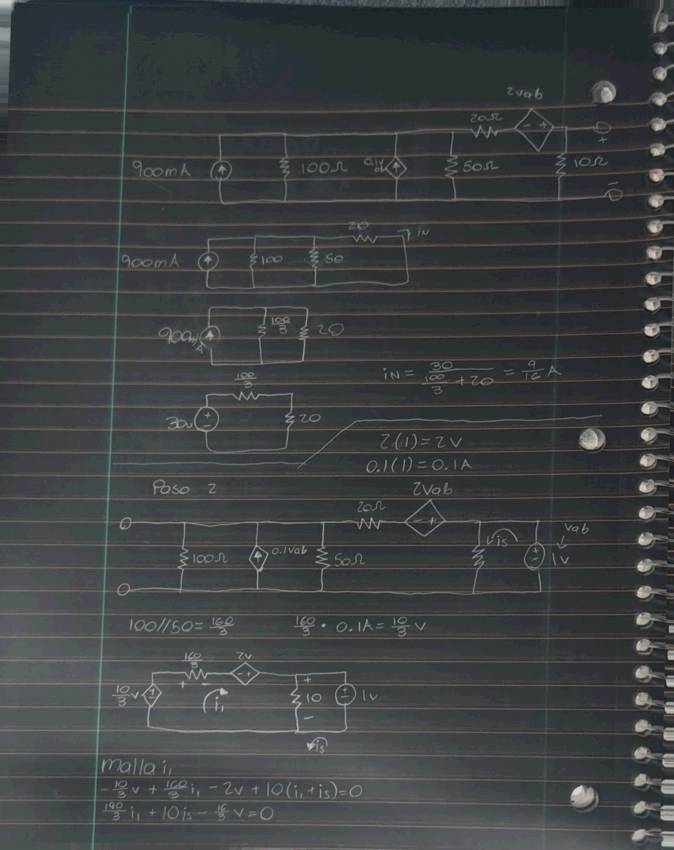 2vab
20Ω
900mA
100Ω
0.1v
50Ω
10Ω
+
-
20
iN
900mA
100
50
900mA
100/3
20
iN = 30/(100/3 + 20) = 9/16 A
100/3
30v
20
2(1) = 2V
0.1(1) = 0.1A
Paso 2
2Vab
20Ω
100Ω
0.1vab
50Ω
is
vab
1V
100//50 = 160/3
160/3 · 0.1A = 10/3 v
160/3
2v
10/3 v
i1
10
1v
is
malla i1
-10/3 v + 160/3 i1 - 2v + 10(i1 + is) = 0
190/3 i1 + 10is - 16/3 v = 0